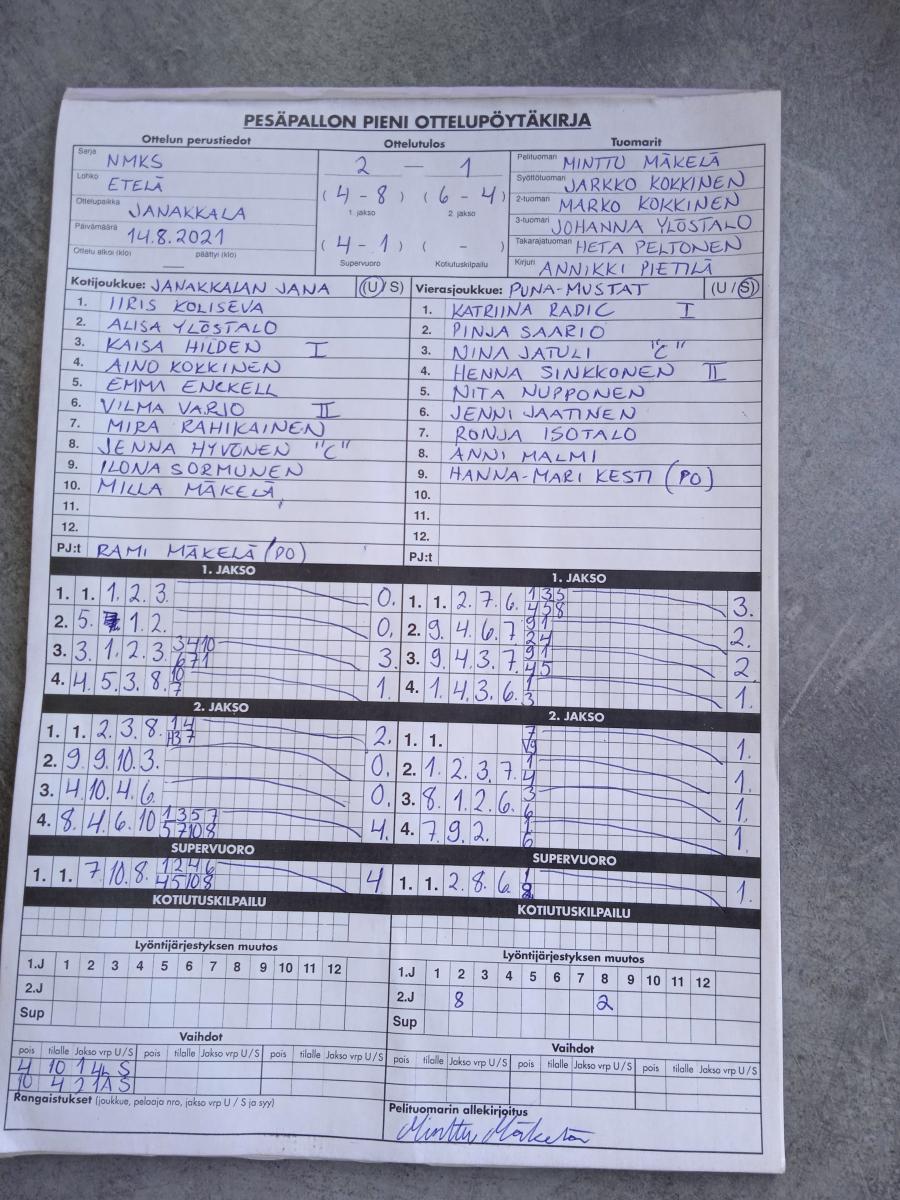 PESÄPALLON PIENI OTTELUPÖYTÄKIRJA
Ottelun perustiedot
Sarja NMKS
Lohko ETELÄ
Ottelupaikka JANAKKALA
Päivämäärä 14.8.2021
Ottelu alkoi (klo) — päättyi (klo)
Ottelutulos
2 — 1
(4-8) (6-4)
1. jakso 2. jakso
(4-1) ( - )
Supervuoro Kotiutuskilpailu
Tuomarit
Pelituomari MINTTU MÄKELÄ
Syöttötuomari JARKKO KOKKINEN
2-tuomari MARKO KOKKINEN
3-tuomari JOHANNA YLÖSTALO
Takarajatuomari HETA PELTONEN
Kirjuri ANNIKKI PIETILÄ
Kotijoukkue: JANAKKALAN JANA (U/S)
1. IIRIS KOLISEVA
2. ALISA YLÖSTALO
3. KAISA HILDEN I
4. AINO KOKKINEN
5. EMMA ENCKELL
6. VILMA VARJO II
7. MIRA RAHIKAINEN
8. JENNA HYVÖNEN "C"
9. ILONA SORMUNEN
10. MILLA MÄKELÄ
11.
12.
PJ:t RAMI MÄKELÄ (PO)
Vierasjoukkue: PUNA-MUSTAT (U/S)
1. KATRIINA RADIC I
2. PINJA SAARIO
3. NINA JATULI "C"
4. HENNA SINKKONEN II
5. NITA NUPPONEN
6. JENNI JAATINEN
7. RONJA ISOTALO
8. ANNI MALMI
9. HANNA-MARI KESTI (PO)
10.
11.
12.
PJ:t
1. JAKSO
1. 1. 1. 2. 3. 0.
2. 5. 1. 2. 0.
3. 3. 1. 2. 3. 3 4 10 3.
6 7 1
4. 4. 5. 3. 8. 10 1.
7
2. JAKSO
1. 1. 2. 3. 8. 1 4 2.
H3 7
2. 9. 9. 10. 3. 0.
3. 4. 10. 4. 6. 0.
4. 8. 4. 6. 10 1 3 5 7 4.
5 7 10 8
SUPERVUORO
1. 1. 7. 10. 8. 1 2 4 6 4
4 5 10 8
KOTIUTUSKILPAILU
1. JAKSO
1. 1. 2. 7. 6. 1 3 5 3.
4 5 8
2. 9. 4. 6. 7 9 1 2.
2 4
3. 9. 4. 3. 7. 9 1 2
4 5
4. 1. 4. 3. 6. 1 1.
3
2. JAKSO
1. 1. 7 1.
V9
2. 1. 2. 3. 7. 1 1.
4
3. 8. 1. 2. 6. 3 1.
6
4. 7. 9. 2. 1 1.
6
SUPERVUORO
1. 1. 2. 8. 6. 1 1.
KOTIUTUSKILPAILU
Lyöntijärjestyksen muutos
1.J 1 2 3 4 5 6 7 8 9 10 11 12
2.J
Sup
Vaihdot
pois tilalle Jakso vrp U/S pois tilalle Jakso vrp U/S pois tilalle Jakso vrp U/S
4 10 1 4L S
10 4 2 1A S
Rangaistukset (joukkue, pelaaja nro, jakso vrp U / S ja syy)
Lyöntijärjestyksen muutos
1.J 1 2 3 4 5 6 7 8 9 10 11 12
2.J 8 2
Sup
Vaihdot
pois tilalle Jakso vrp U/S pois tilalle Jakso vrp U/S pois tilalle Jakso vrp U/S
Pelituomarin allekirjoitus
Minttu Mäkelä